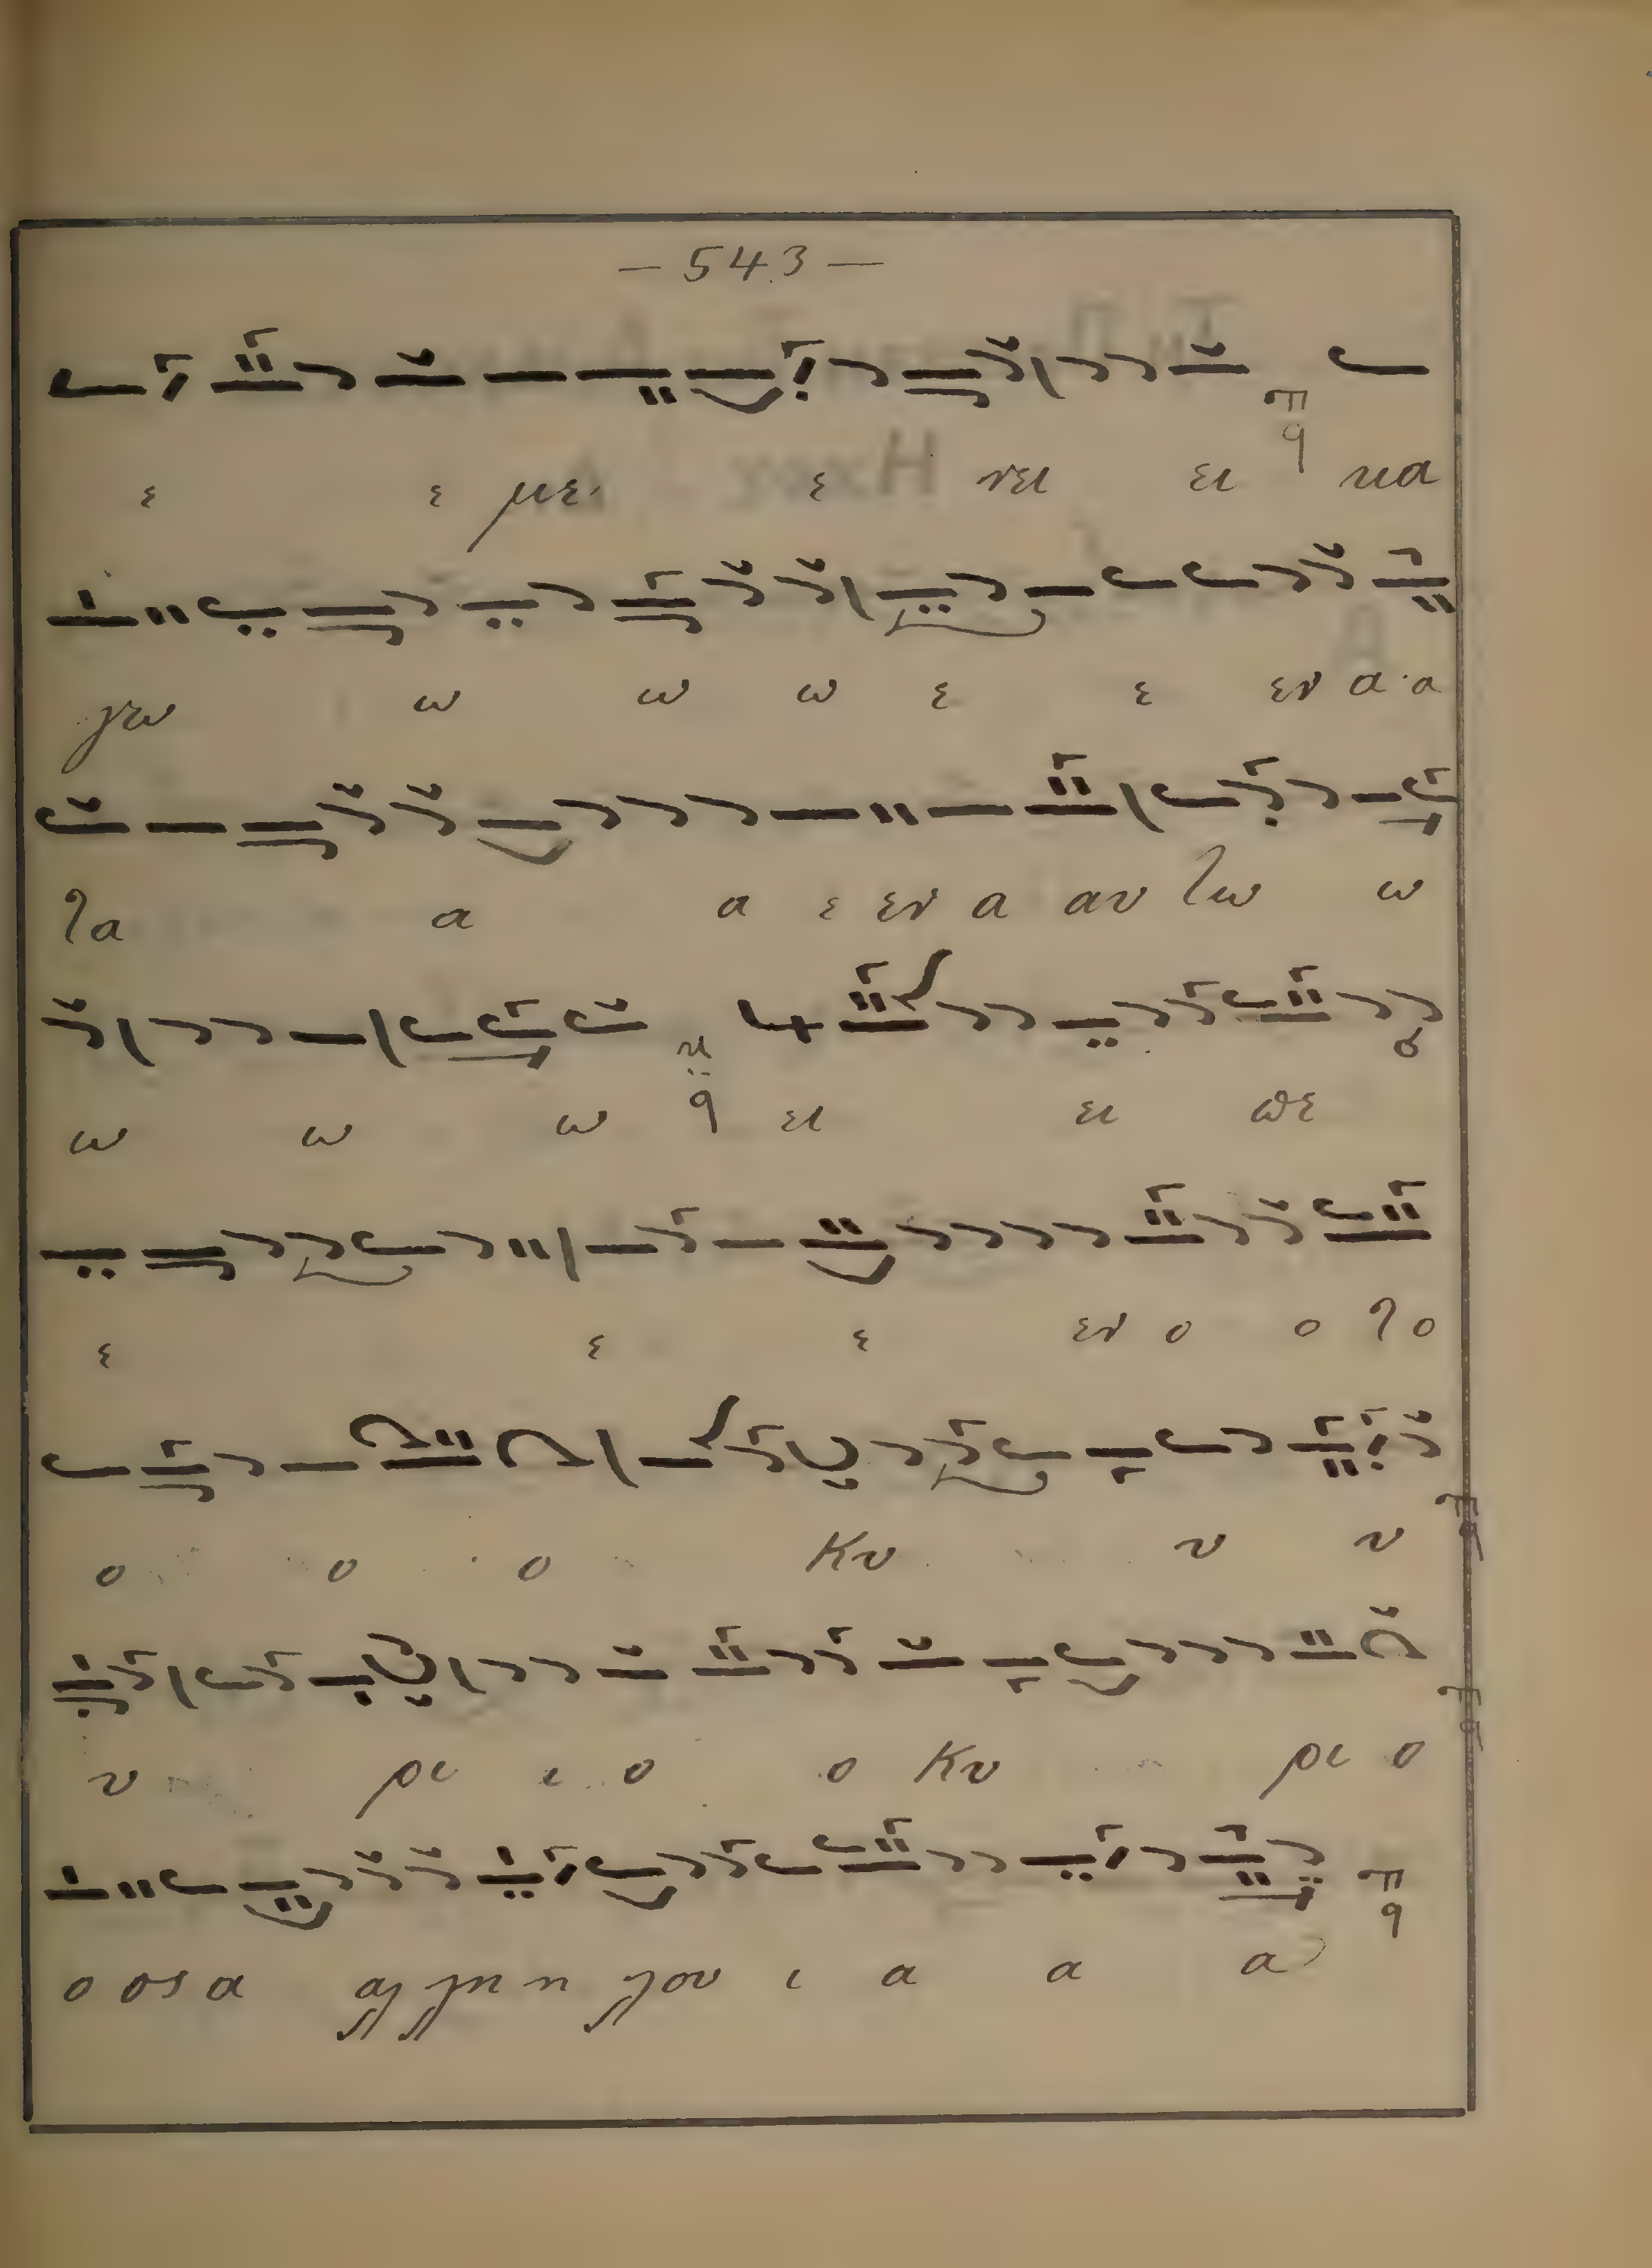 — 543 —
ε ε με ε νει ει κα
γω ω ω ω ε ε εν α α
τα α α ε εν α αυ τω ω
ω ω ω ει ει πε
ε ε ε εν ο ο το
ο ο ο Κυ υ υ
υ ρι ι ο ο Κυ ρι ο
ο ος α αλ λη η λου ι α α α